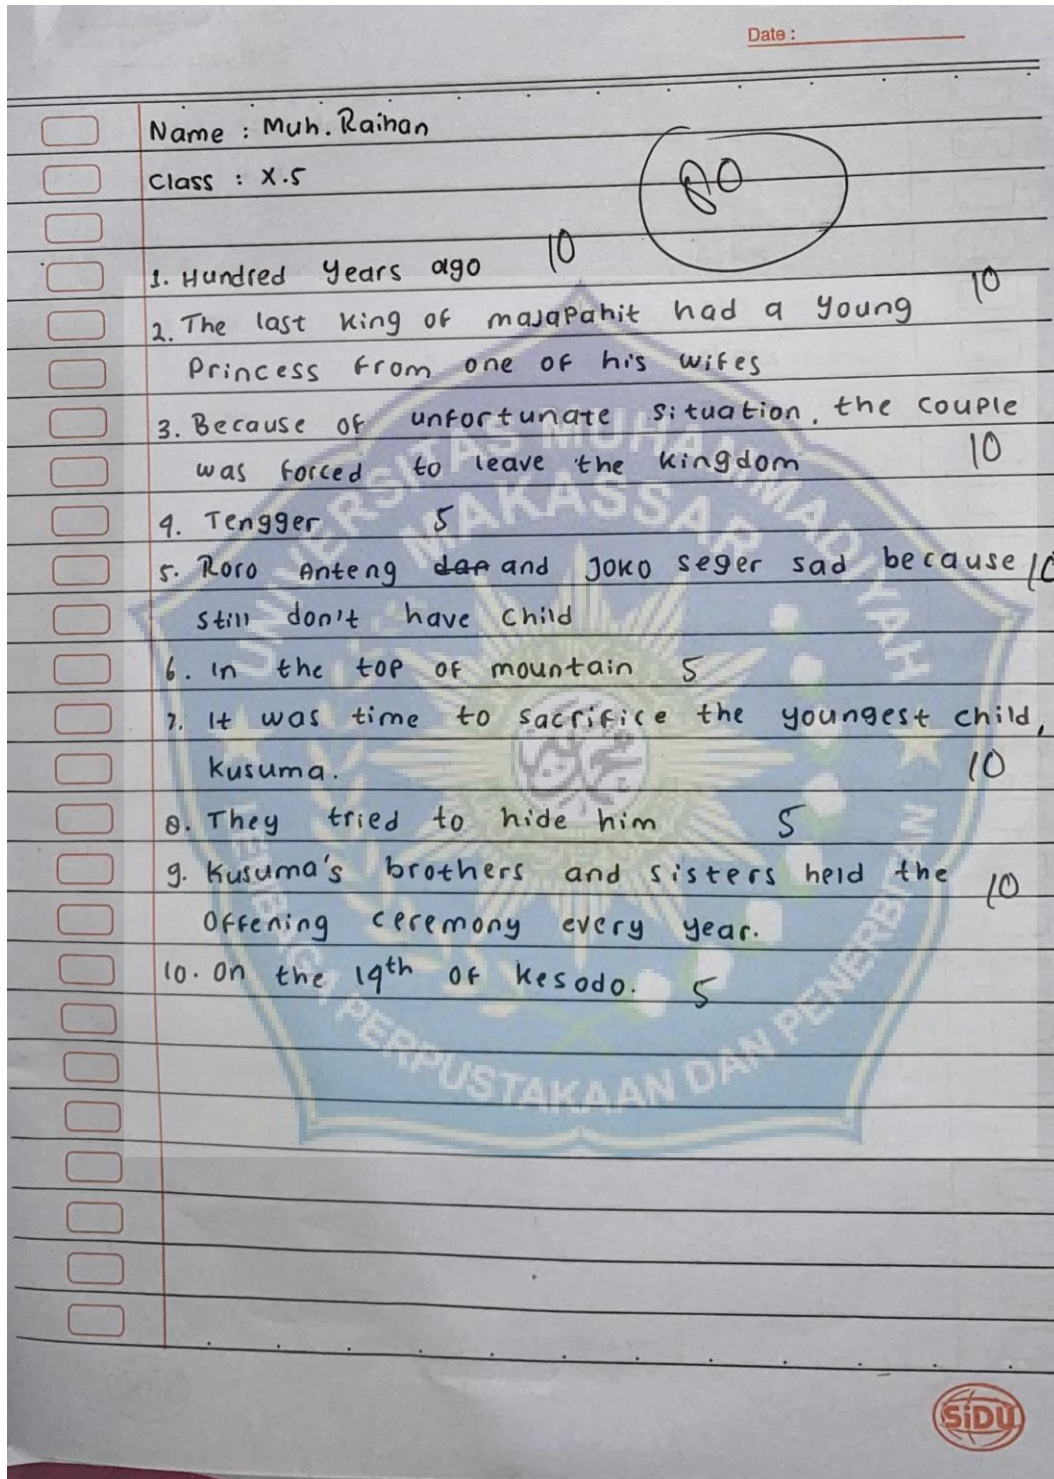 Date :
Name : Muh. Raihan
Class : X.5
80
1. Hundred years ago 10
2. The last king of majapahit had a young 10
Princess from one of his wifes
3. Because of unfortunate situation, the couple
was forced to leave the kingdom 10
4. Tengger 5
5. Roro Anteng dan and Joko seger sad because 10
still don't have child
6. In the top of mountain 5
7. It was time to sacrifice the youngest child,
Kusuma. 10
8. They tried to hide him 5
9. Kusuma's brothers and sisters held the 10
Offening ceremony every year.
10. On the 14th of Kesodo. 5
UNIVERSITAS MUHAMMADIYAH
MAKASSAR
LEMBAGA PERPUSTAKAAN DAN PENERBITAN
SiDU